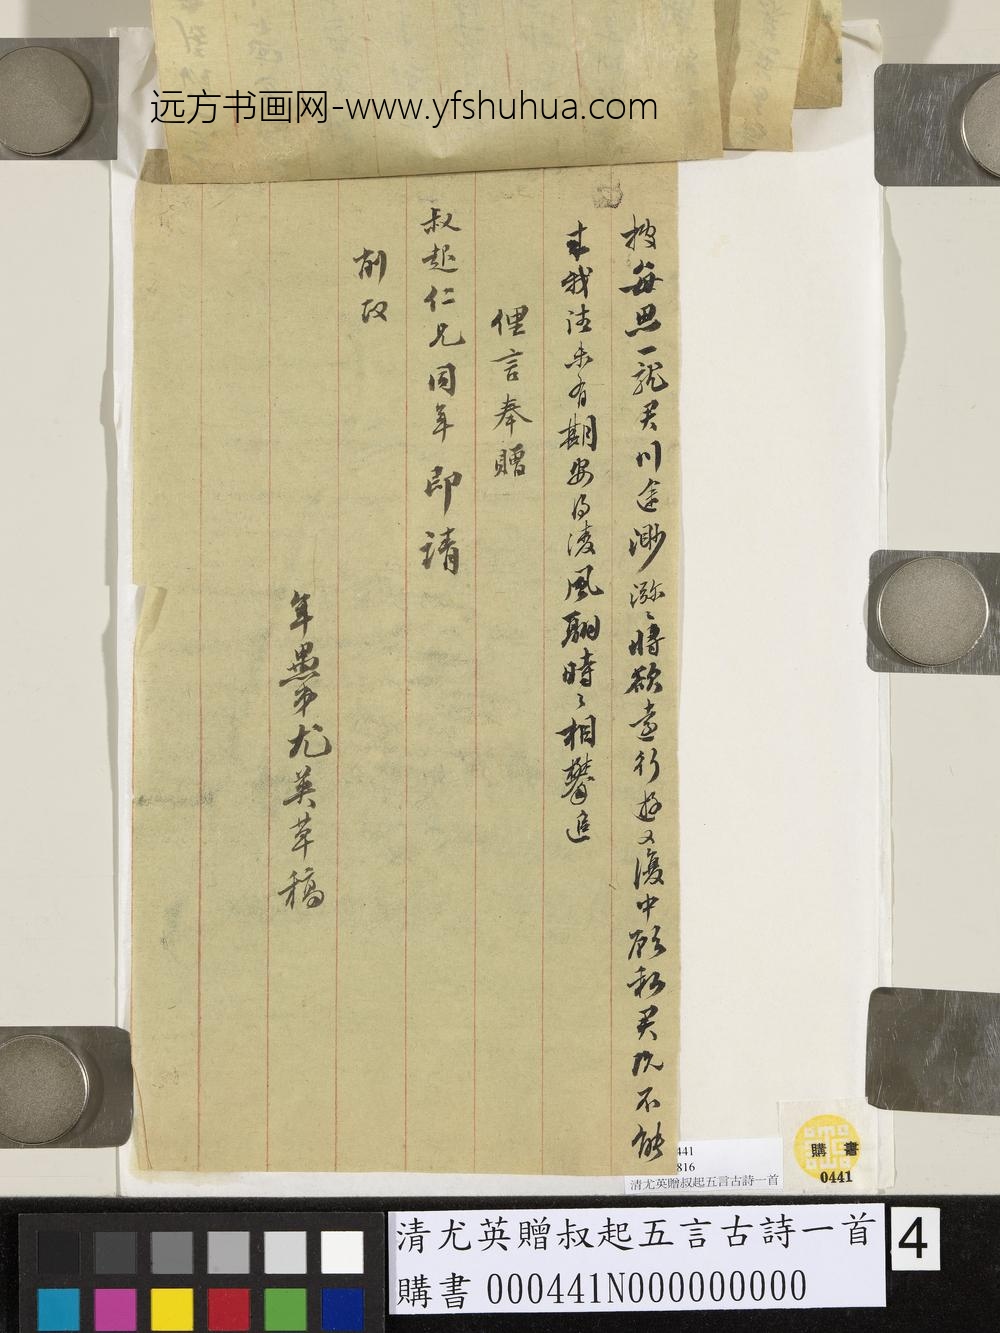 远方书画网-www.yfshuhua.com
披每思一說君川途渺瀰〻時欲壹行遊又復中顧私君既不能
來我往未有期安得淩風翮時〻相攀追
俚言奉贈
叔起仁兄同年 即請
削改
年愚弟尤英草稿
441
816
清尤英贈叔起五言古詩一首
購書
0441
清尤英贈叔起五言古詩一首
購書 000441N000000000
4